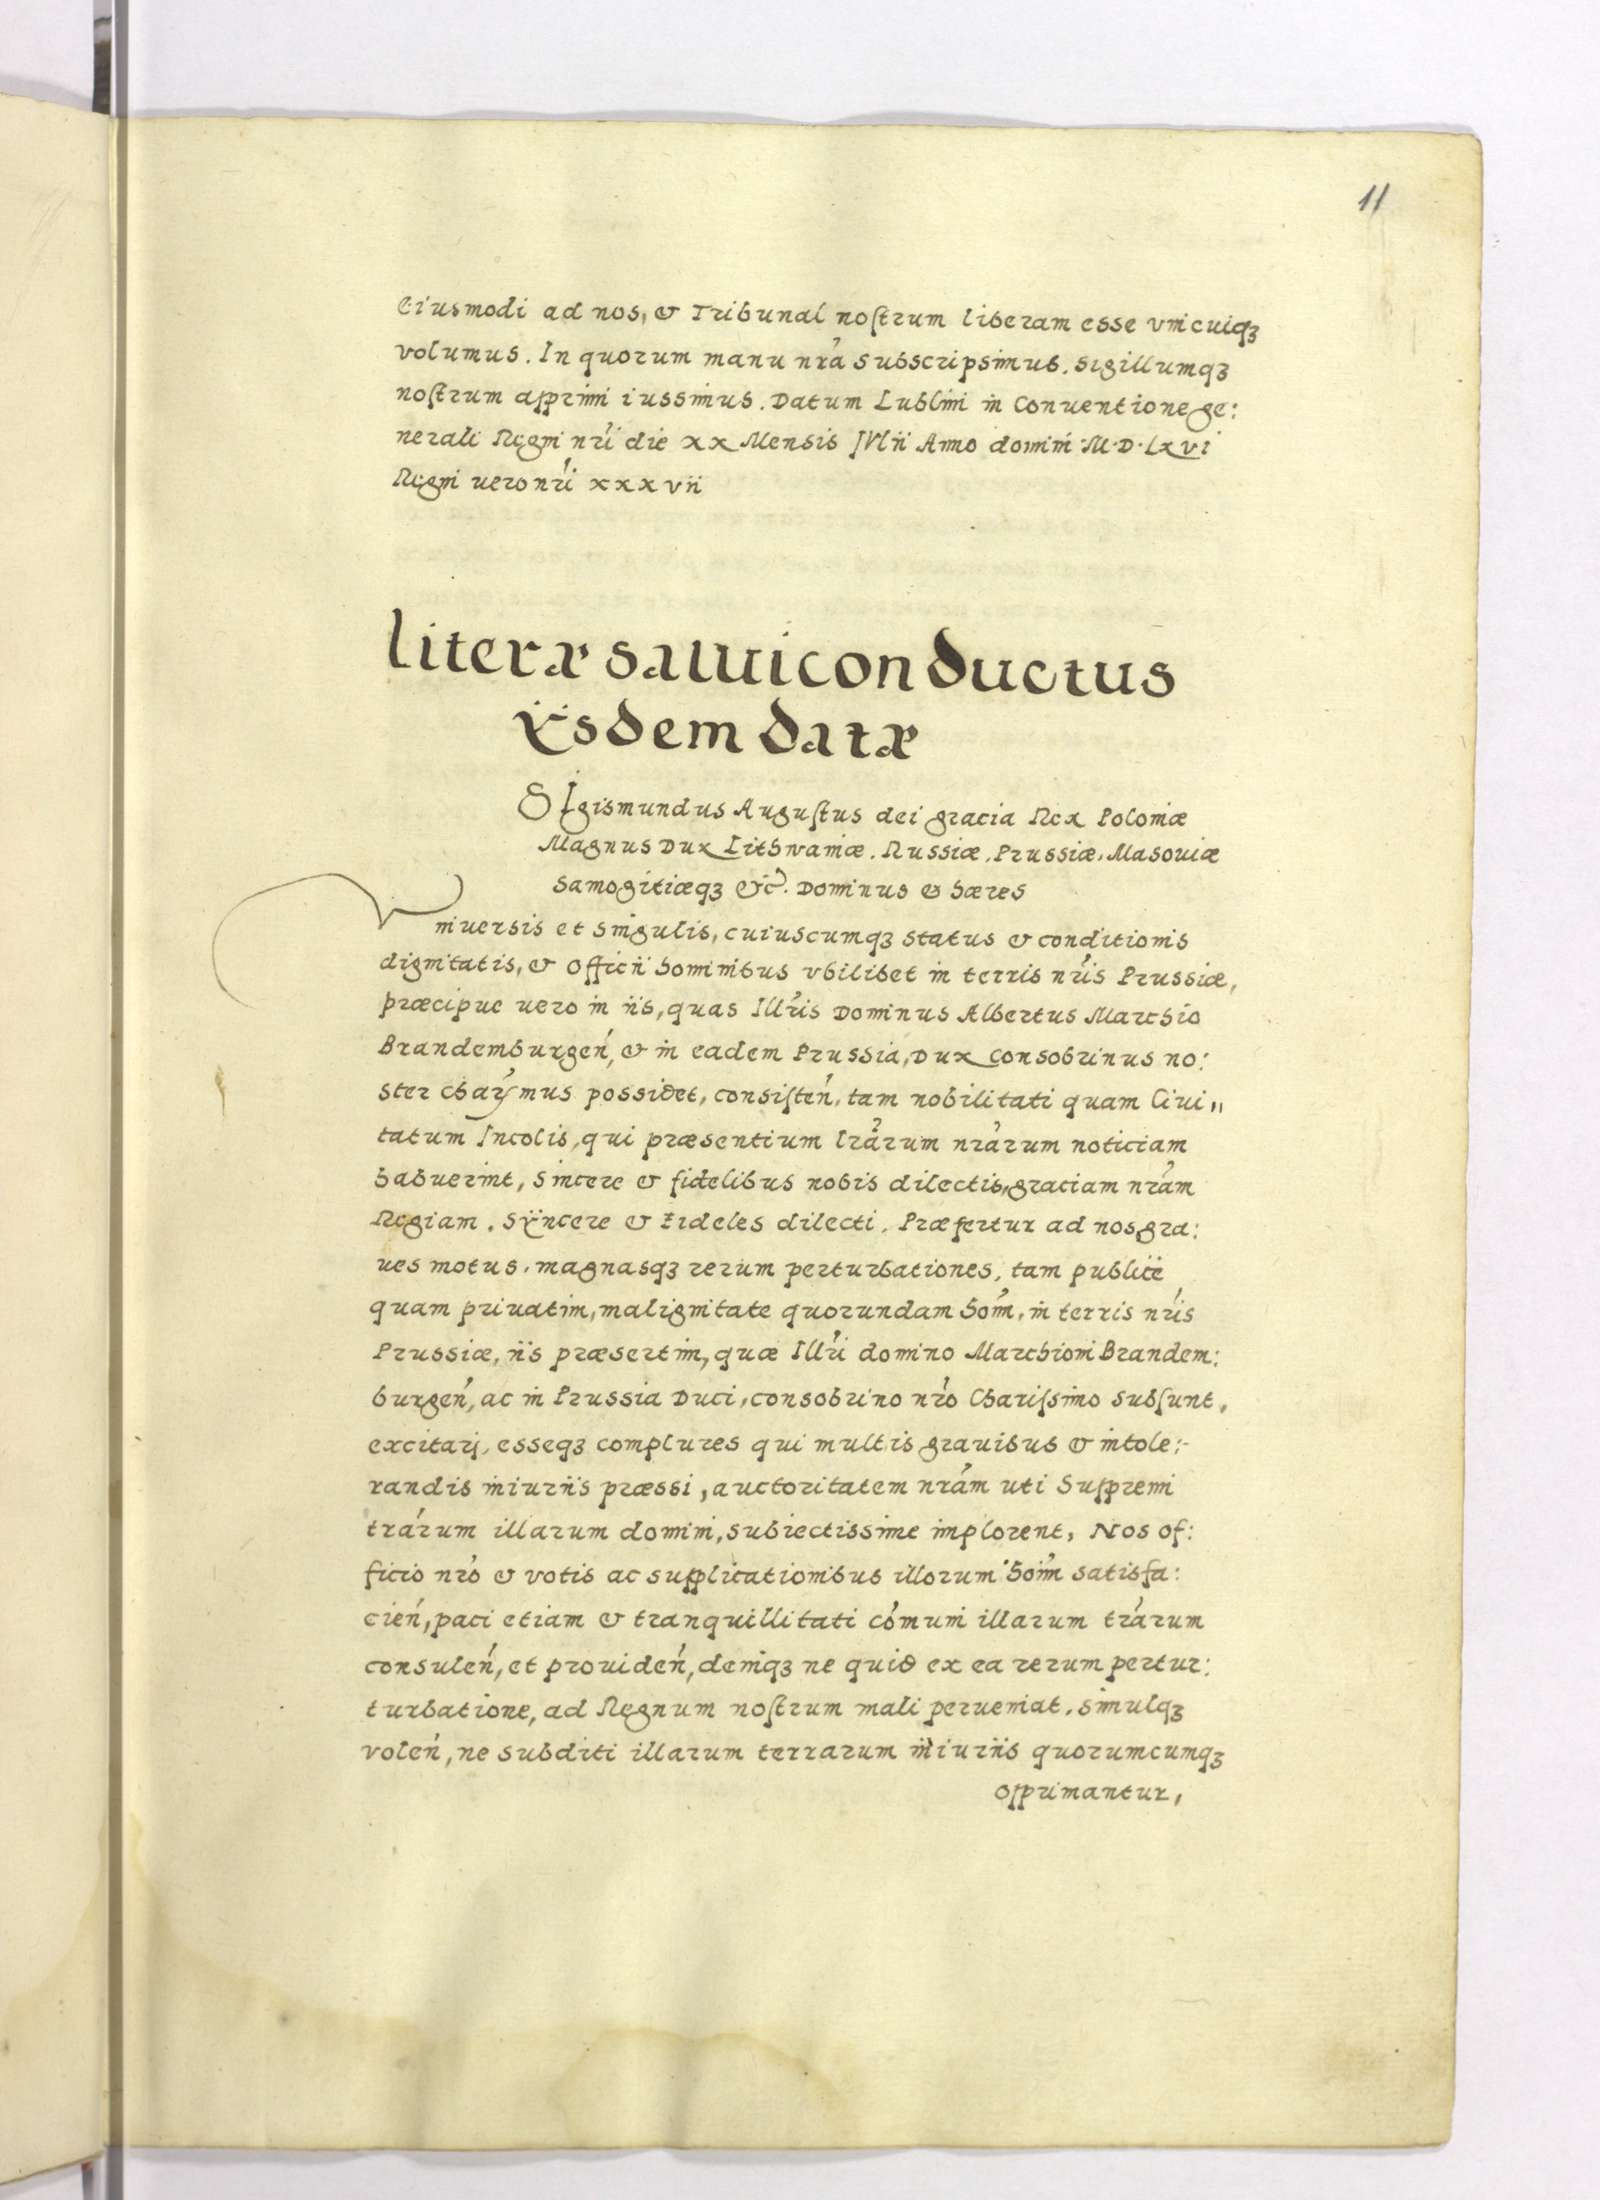 11
Eiusmodi ad nos, & Tribunal nostrum liberam esse vnicuiqȝ
volumus. In quorum manu nrã subscripsimus. Sigillumqȝ
nostrum apprimi iussimus. Datum Lublini in Conuentione ge:
nerali Regni nrĩ die xx Mensis IVlii Anno domini M·D·Lxvi
Regni uero nrĩ xxxvii
Literæ salui conductus
ÿsdem datæ
SIgismundus Augustus dei gracia Rex Poloniæ
Magnus Dux Lithwaniæ. Russiæ. Prussiæ. Masouiæ
Samogitiæqȝ &c̃. Dominus & hæres
Vniuersis et singulis, cuiuscumqȝ status & conditionis
dignitatis, & officii hominibus vbilibet in terris nrĩs Prussiæ,
præcipue uero in iis, quas Illrĩs Dominus Albertus Marchio
Brandemburgeñ, & in eadem Prussia, Dux Consobrinus no:
ster charÿmus possidet, consisteñ, tam nobilitati quam Ciui„
tatum Incolis, qui præsentium lrãrum nrãrum noticiam
habuerint, Sincere & fidelibus nobis dilectis, graciam nrãm
Regiam. Sÿncere & Fideles dilecti. Præfertur ad nos, gra:
ues motus. magnasqȝ rerum perturbationes, tam publice
quam priuatim, malignitate quorundam hom̃, in terris nrĩs
Prussiæ, iis præsertim, quæ Illrĩ domino Marchioni Brandem:
burgeñ, ac in Prussia Duci, consobrino nrõ Charissimo subsunt,
excitari, esseqȝ complures qui multis grauibus & intole:
randis iniuriis præssi, auctoritatem nrãm uti Supremi
trãrum illarum domini, subiectissime implorent, Nos of:
ficio nrõ & votis ac supplicationibus illorum hoim̃ satisfa:
cieñ, paci etiam & tranquillitati cõmuni illarum trãrum
consuleñ, et prouideñ, deniqȝ ne quid ex ea rerum pertur:
turbatione, ad Regnum nostrum mali perueniat, simulqȝ
voleñ, ne subditi illarum terrarum iniuriis quorumcumqȝ
opprimantur,